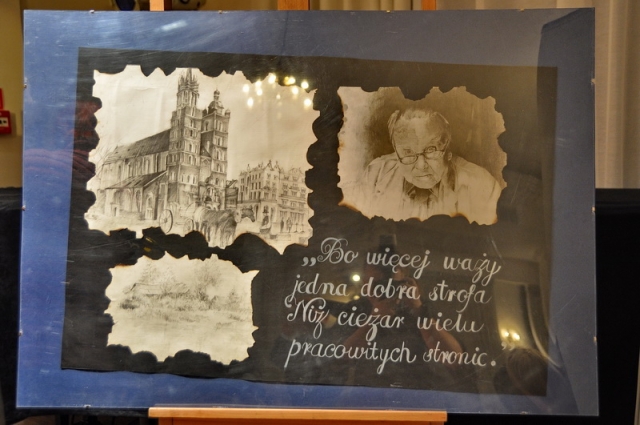 „Bo więcej waży
jedna dobra strofa
Niż ciężar wielu
pracowitych stronic.